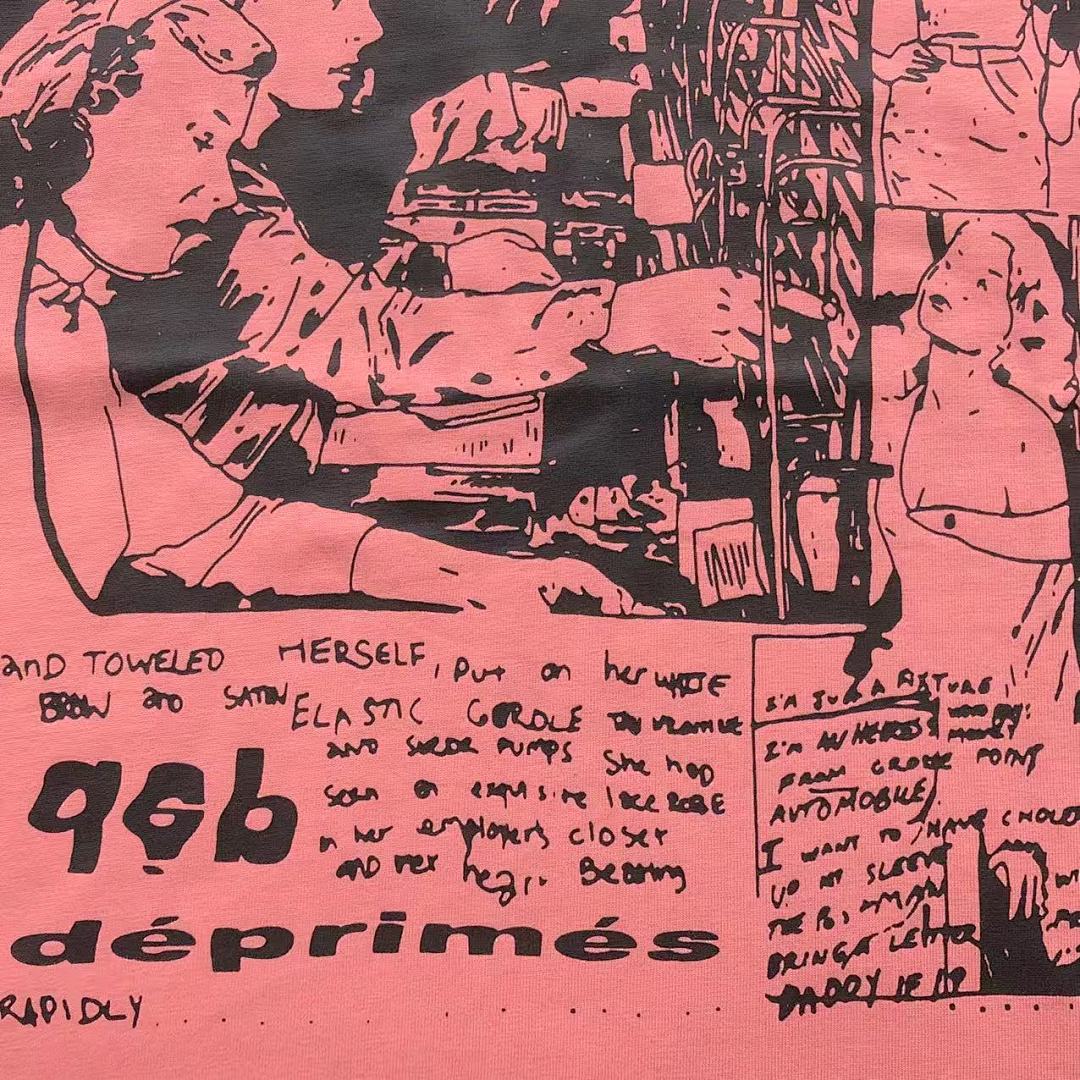 anD TOWELED HERSELF, put on her WHITE
BROW and SATIN ELASTIC GIRDLE
AND SUEDE PUMPS She had
seen an exquisite lace ROBE
in her employer's closet
AND HER heart Beating
qsb
déprimés
RAPIDLY
I'M JUST A FIXTURE
I'M AN HEIRESS MONEY
FROM GROSSE POINT
AUTOMOBILE
I WANT TO HAVE
UP MY SLEEVE
BRING A LETTER
DADDY IF